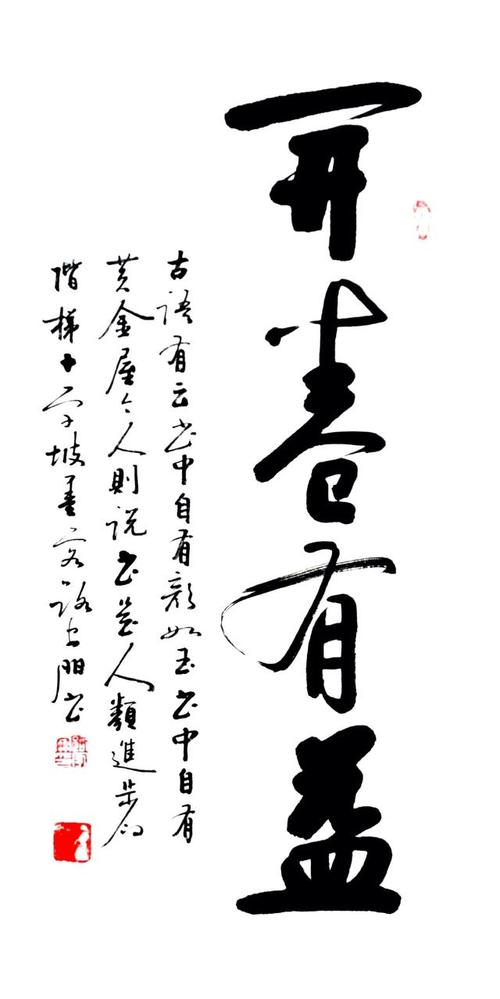 开卷有益
古语有云书中自有颜如玉书中自有
黄金屋今人則说书是人類進步的
階梯十字坡墨客路